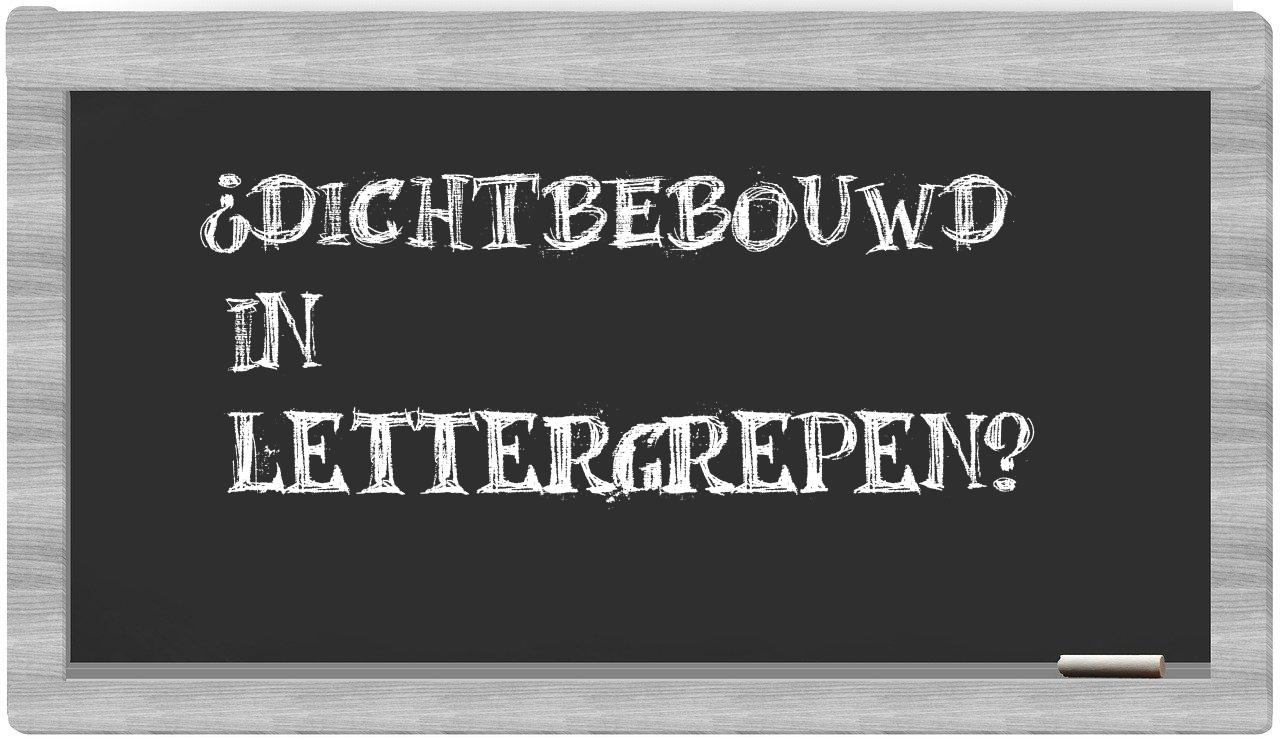 ¿DICHTBEBOUWD
IN
LETTERGREPEN?